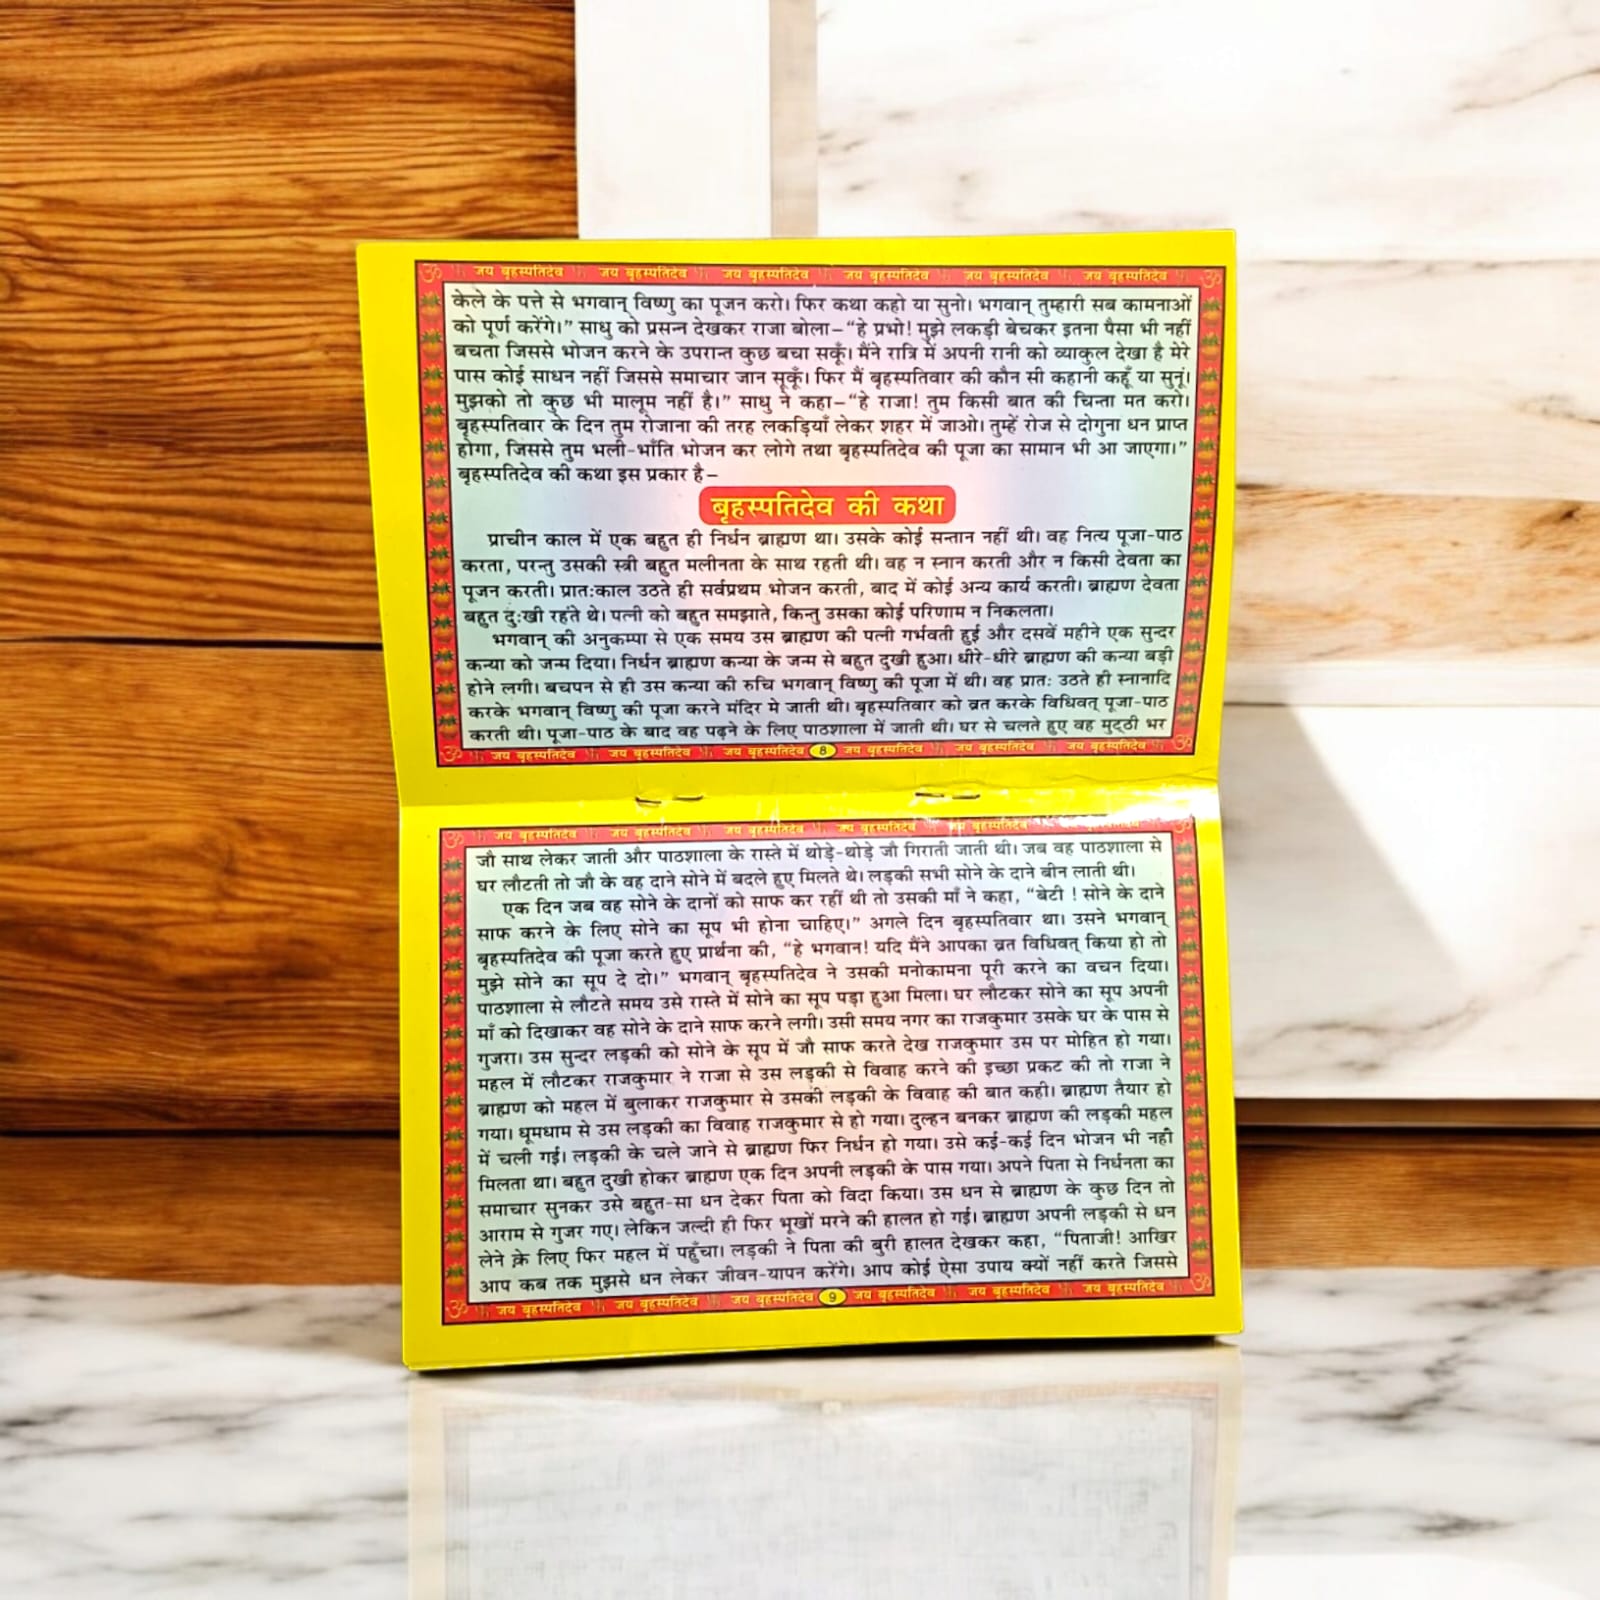 ॐ जय बृहस्पतिदेव जय बृहस्पतिदेव जय बृहस्पतिदेव जय बृहस्पतिदेव जय बृहस्पतिदेव जय बृहस्पतिदेव ॐ
केले के पत्ते से भगवान् विष्णु का पूजन करो। फिर कथा कहो या सुनो। भगवान् तुम्हारी सब कामनाओं
को पूर्ण करेंगे।” साधु को प्रसन्न देखकर राजा बोला–“हे प्रभो! मुझे लकड़ी बेचकर इतना पैसा भी नहीं
बचता जिससे भोजन करने के उपरान्त कुछ बचा सकूँ। मैंने रात्रि में अपनी रानी को व्याकुल देखा है मेरे
पास कोई साधन नहीं जिससे समाचार जान सूकूँ। फिर मैं बृहस्पतिवार की कौन सी कहानी कहूँ या सुनूं।
मुझको तो कुछ भी मालूम नहीं है।” साधु ने कहा–“हे राजा! तुम किसी बात की चिन्ता मत करो।
बृहस्पतिवार के दिन तुम रोजाना की तरह लकड़ियाँ लेकर शहर में जाओ। तुम्हें रोज से दोगुना धन प्राप्त
होगा, जिससे तुम भली-भाँति भोजन कर लोगे तथा बृहस्पतिदेव की पूजा का सामान भी आ जाएगा।”
बृहस्पतिदेव की कथा इस प्रकार है–
बृहस्पतिदेव की कथा
प्राचीन काल में एक बहुत ही निर्धन ब्राह्मण था। उसके कोई सन्तान नहीं थी। वह नित्य पूजा-पाठ
करता, परन्तु उसकी स्त्री बहुत मलीनता के साथ रहती थी। वह न स्नान करती और न किसी देवता का
पूजन करती। प्रात:काल उठते ही सर्वप्रथम भोजन करती, बाद में कोई अन्य कार्य करती। ब्राह्मण देवता
बहुत दु:खी रहते थे। पत्नी को बहुत समझाते, किन्तु उसका कोई परिणाम न निकलता।
भगवान् की अनुकम्पा से एक समय उस ब्राह्मण की पत्नी गर्भवती हुई और दसवें महीने एक सुन्दर
कन्या को जन्म दिया। निर्धन ब्राह्मण कन्या के जन्म से बहुत दुखी हुआ। धीरे-धीरे ब्राह्मण की कन्या बड़ी
होने लगी। बचपन से ही उस कन्या की रुचि भगवान् विष्णु की पूजा में थी। वह प्रात: उठते ही स्नानादि
करके भगवान् विष्णु की पूजा करने मंदिर मे जाती थी। बृहस्पतिवार को व्रत करके विधिवत् पूजा-पाठ
करती थी। पूजा-पाठ के बाद वह पढ़ने के लिए पाठशाला में जाती थी। घर से चलते हुए वह मुट्ठी भर
ॐ जय बृहस्पतिदेव जय बृहस्पतिदेव जय बृहस्पतिदेव 8 जय बृहस्पतिदेव जय बृहस्पतिदेव जय बृहस्पतिदेव ॐ
ॐ जय बृहस्पतिदेव जय बृहस्पतिदेव जय बृहस्पतिदेव जय बृहस्पतिदेव जय बृहस्पतिदेव
जौ साथ लेकर जाती और पाठशाला के रास्ते में थोड़े-थोड़े जौ गिराती जाती थी। जब वह पाठशाला से
घर लौटती तो जौ के वह दाने सोने में बदले हुए मिलते थे। लड़की सभी सोने के दाने बीन लाती थी।
एक दिन जब वह सोने के दानों को साफ कर रहीं थी तो उसकी माँ ने कहा, “बेटी ! सोने के दाने
साफ करने के लिए सोने का सूप भी होना चाहिए।” अगले दिन बृहस्पतिवार था। उसने भगवान्
बृहस्पतिदेव की पूजा करते हुए प्रार्थना की, “हे भगवान! यदि मैंने आपका व्रत विधिवत् किया हो तो
मुझे सोने का सूप दे दो।” भगवान् बृहस्पतिदेव ने उसकी मनोकामना पूरी करने का वचन दिया।
पाठशाला से लौटते समय उसे रास्ते में सोने का सूप पड़ा हुआ मिला। घर लौटकर सोने का सूप अपनी
माँ को दिखाकर वह सोने के दाने साफ करने लगी। उसी समय नगर का राजकुमार उसके घर के पास से
गुजरा। उस सुन्दर लड़की को सोने के सूप में जौ साफ करते देख राजकुमार उस पर मोहित हो गया।
महल में लौटकर राजकुमार ने राजा से उस लड़की से विवाह करने की इच्छा प्रकट की तो राजा ने
ब्राह्मण को महल में बुलाकर राजकुमार से उसकी लड़की के विवाह की बात कही। ब्राह्मण तैयार हो
गया। धूमधाम से उस लड़की का विवाह राजकुमार से हो गया। दुल्हन बनकर ब्राह्मण की लड़की महल
में चली गई। लड़की के चले जाने से ब्राह्मण फिर निर्धन हो गया। उसे कई-कई दिन भोजन भी नहीं
मिलता था। बहुत दुखी होकर ब्राह्मण एक दिन अपनी लड़की के पास गया। अपने पिता से निर्धनता का
समाचार सुनकर उसे बहुत-सा धन देकर पिता को विदा किया। उस धन से ब्राह्मण के कुछ दिन तो
आराम से गुजर गए। लेकिन जल्दी ही फिर भूखों मरने की हालत हो गई। ब्राह्मण अपनी लड़की से धन
लेने के लिए फिर महल में पहुँचा। लड़की ने पिता की बुरी हालत देखकर कहा, “पिताजी! आखिर
आप कब तक मुझसे धन लेकर जीवन-यापन करेंगे। आप कोई ऐसा उपाय क्यों नहीं करते जिससे
ॐ जय बृहस्पतिदेव जय बृहस्पतिदेव जय बृहस्पतिदेव 9 जय बृहस्पतिदेव जय बृहस्पतिदेव जय बृहस्पतिदेव ॐ